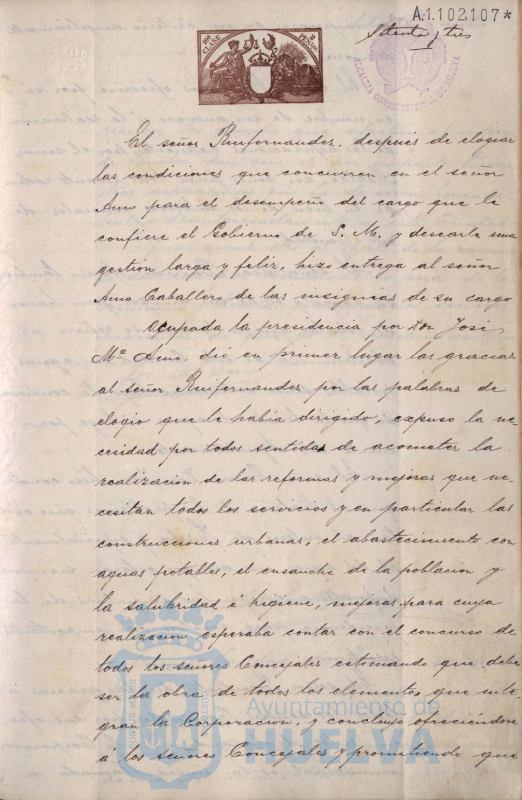 A.1.102107*
Setenta y tres
10ª CLASE 2 PESETAS
ALCALDIA CONSTITUCIONAL DE HUELVA
El señor Ruifernandez, despues de elogiar
las condiciones que concurren en el señor
Amo para el desempeño del cargo que le
confiere el Gobierno de S. M. y desearle una
gestion larga y feliz, hizo entrega al señor
Amo Caballero de las insignias de su cargo
Ocupada la presidencia por Don José
Mª Amo, dió en primer lugar las gracias
al señor Ruifernandez por las palabras de
elogio que le habia dirigido; expuso la ne-
cesidad por todos sentida de acometer la
realizacion de las reformas y mejoras que ne-
cesitan todos los servicios y en particular las
construcciones urbanas, el abastecimiento con
aguas potables, el ensanche de la poblacion y
la salubridad é higiene, mejoras para cuya
realizacion esperaba contar con el concurso de
todos los señores Concejales estimando que debe
ser la obra de todos los elementos que inte-
gran la Corporacion, y concluyo ofreciéndose
á los señores Concejales y prometiendo que
Ayuntamiento de
HUELVA